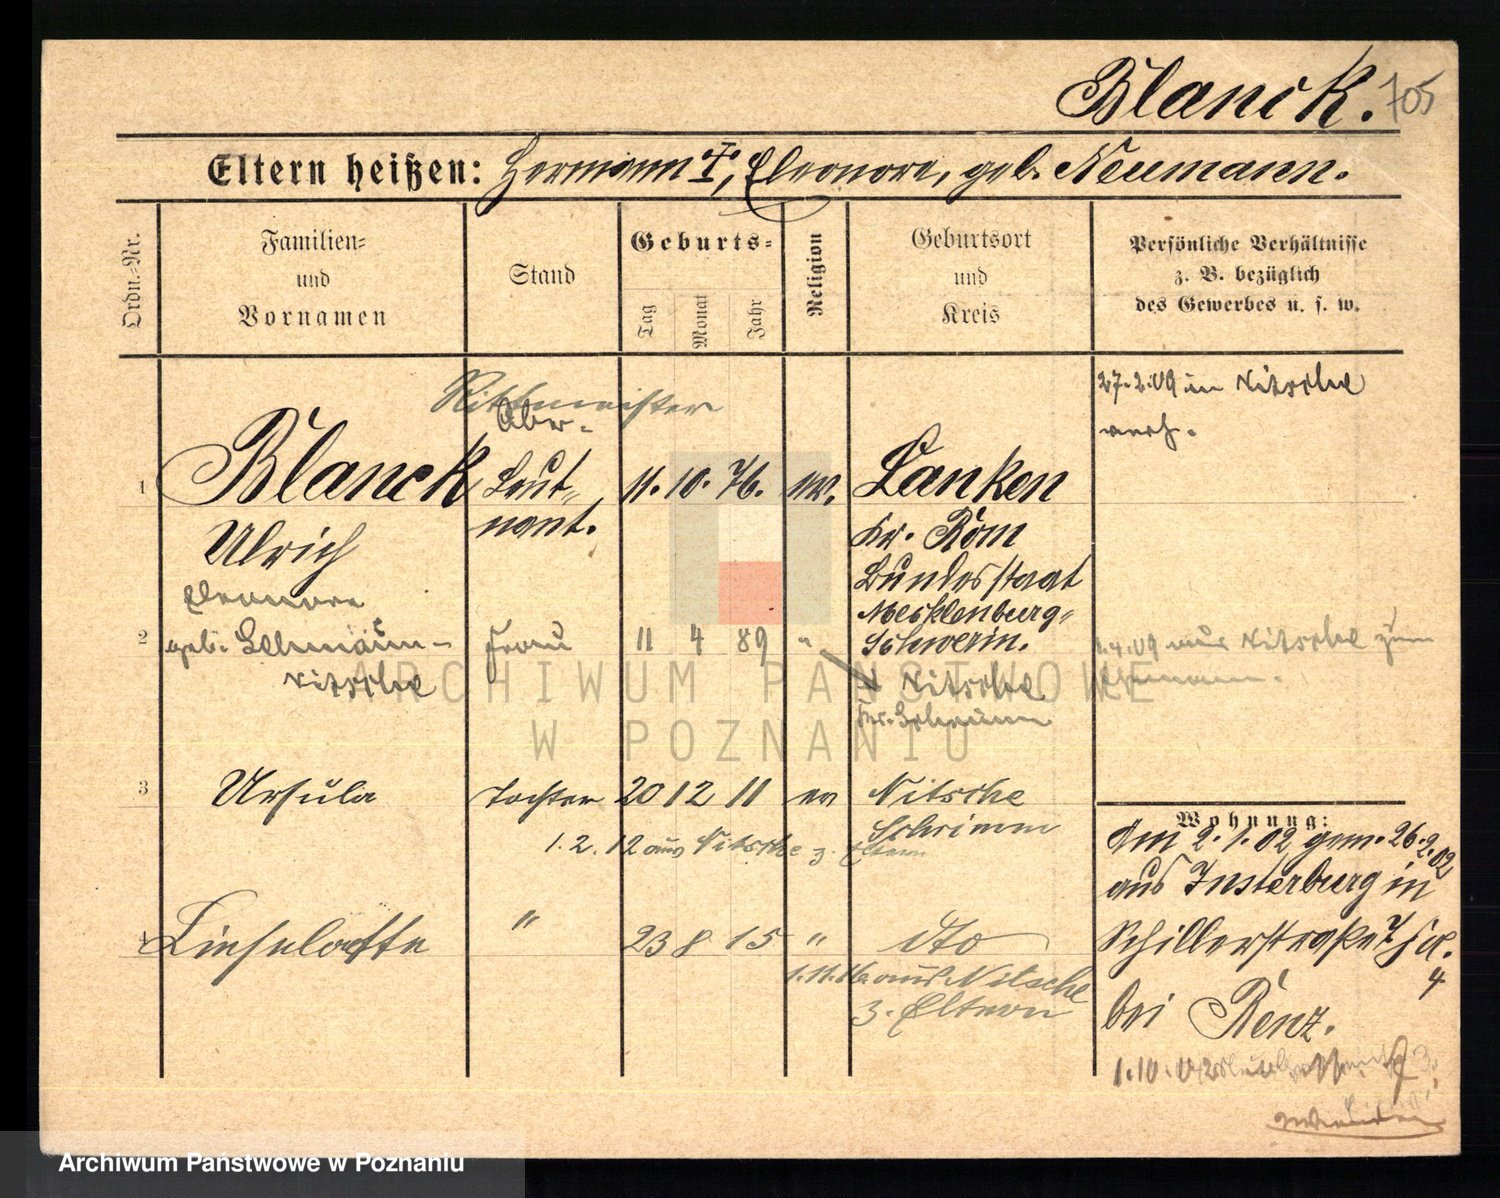 Blanck. 705
Eltern heißen: Hermann I, Eleonore, geb. Neumann.
Ordn.-Nr.
Familien-
und
Vornamen
Stand
Geburts-
Tag
Monat
Jahr
Religion
Geburtsort
und
Kreis
Persönliche Verhältnisse
z. B. bezüglich
des Gewerbes u. s. w.
27.2.09 in Nitsche
verh.
Rittmeister
Ober-
1 Blanck Leut- 11. 10. 76. Lanken
Ulrich nant. Kr. Röm
Bundesstaat
Mecklenburg-
Schwerin.
Eleonore
2 geb. Lehmann- Frau 11 4 89 "
Nitsche
Nitsche
Kr. Schrimm
1.4.09 aus Nitsche zum
Ehemann.
3 Ursula Tochter 20 12 11 ev Nitsche
Schrimm
1.2.12 aus Nitsche z. Eltern
4 Lieselotte " 23 8 15 " dto
1.11.16 aus Nitsche
z. Eltern
Wohnung:
Am 2.1.02 gem. 26.2.02
aus Insterburg in
Schillerstraße 7
4
bei Renz.
1.10.02
ARCHIWUM PAŃSTWOWE
W POZNANIU
Archiwum Państwowe w Poznaniu